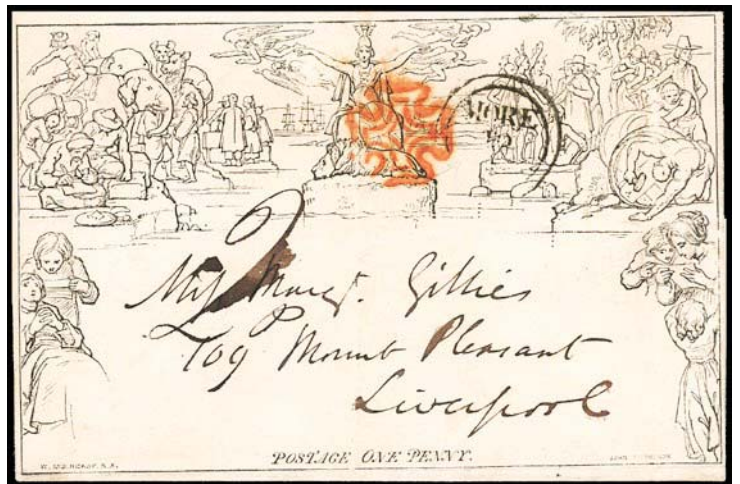 MORE
2
Miss Margt. Gillies
109 Mount Pleasant
Liverpool
POSTAGE ONE PENNY.
W. MULREADY. R.A.
JOHN THOMPSON